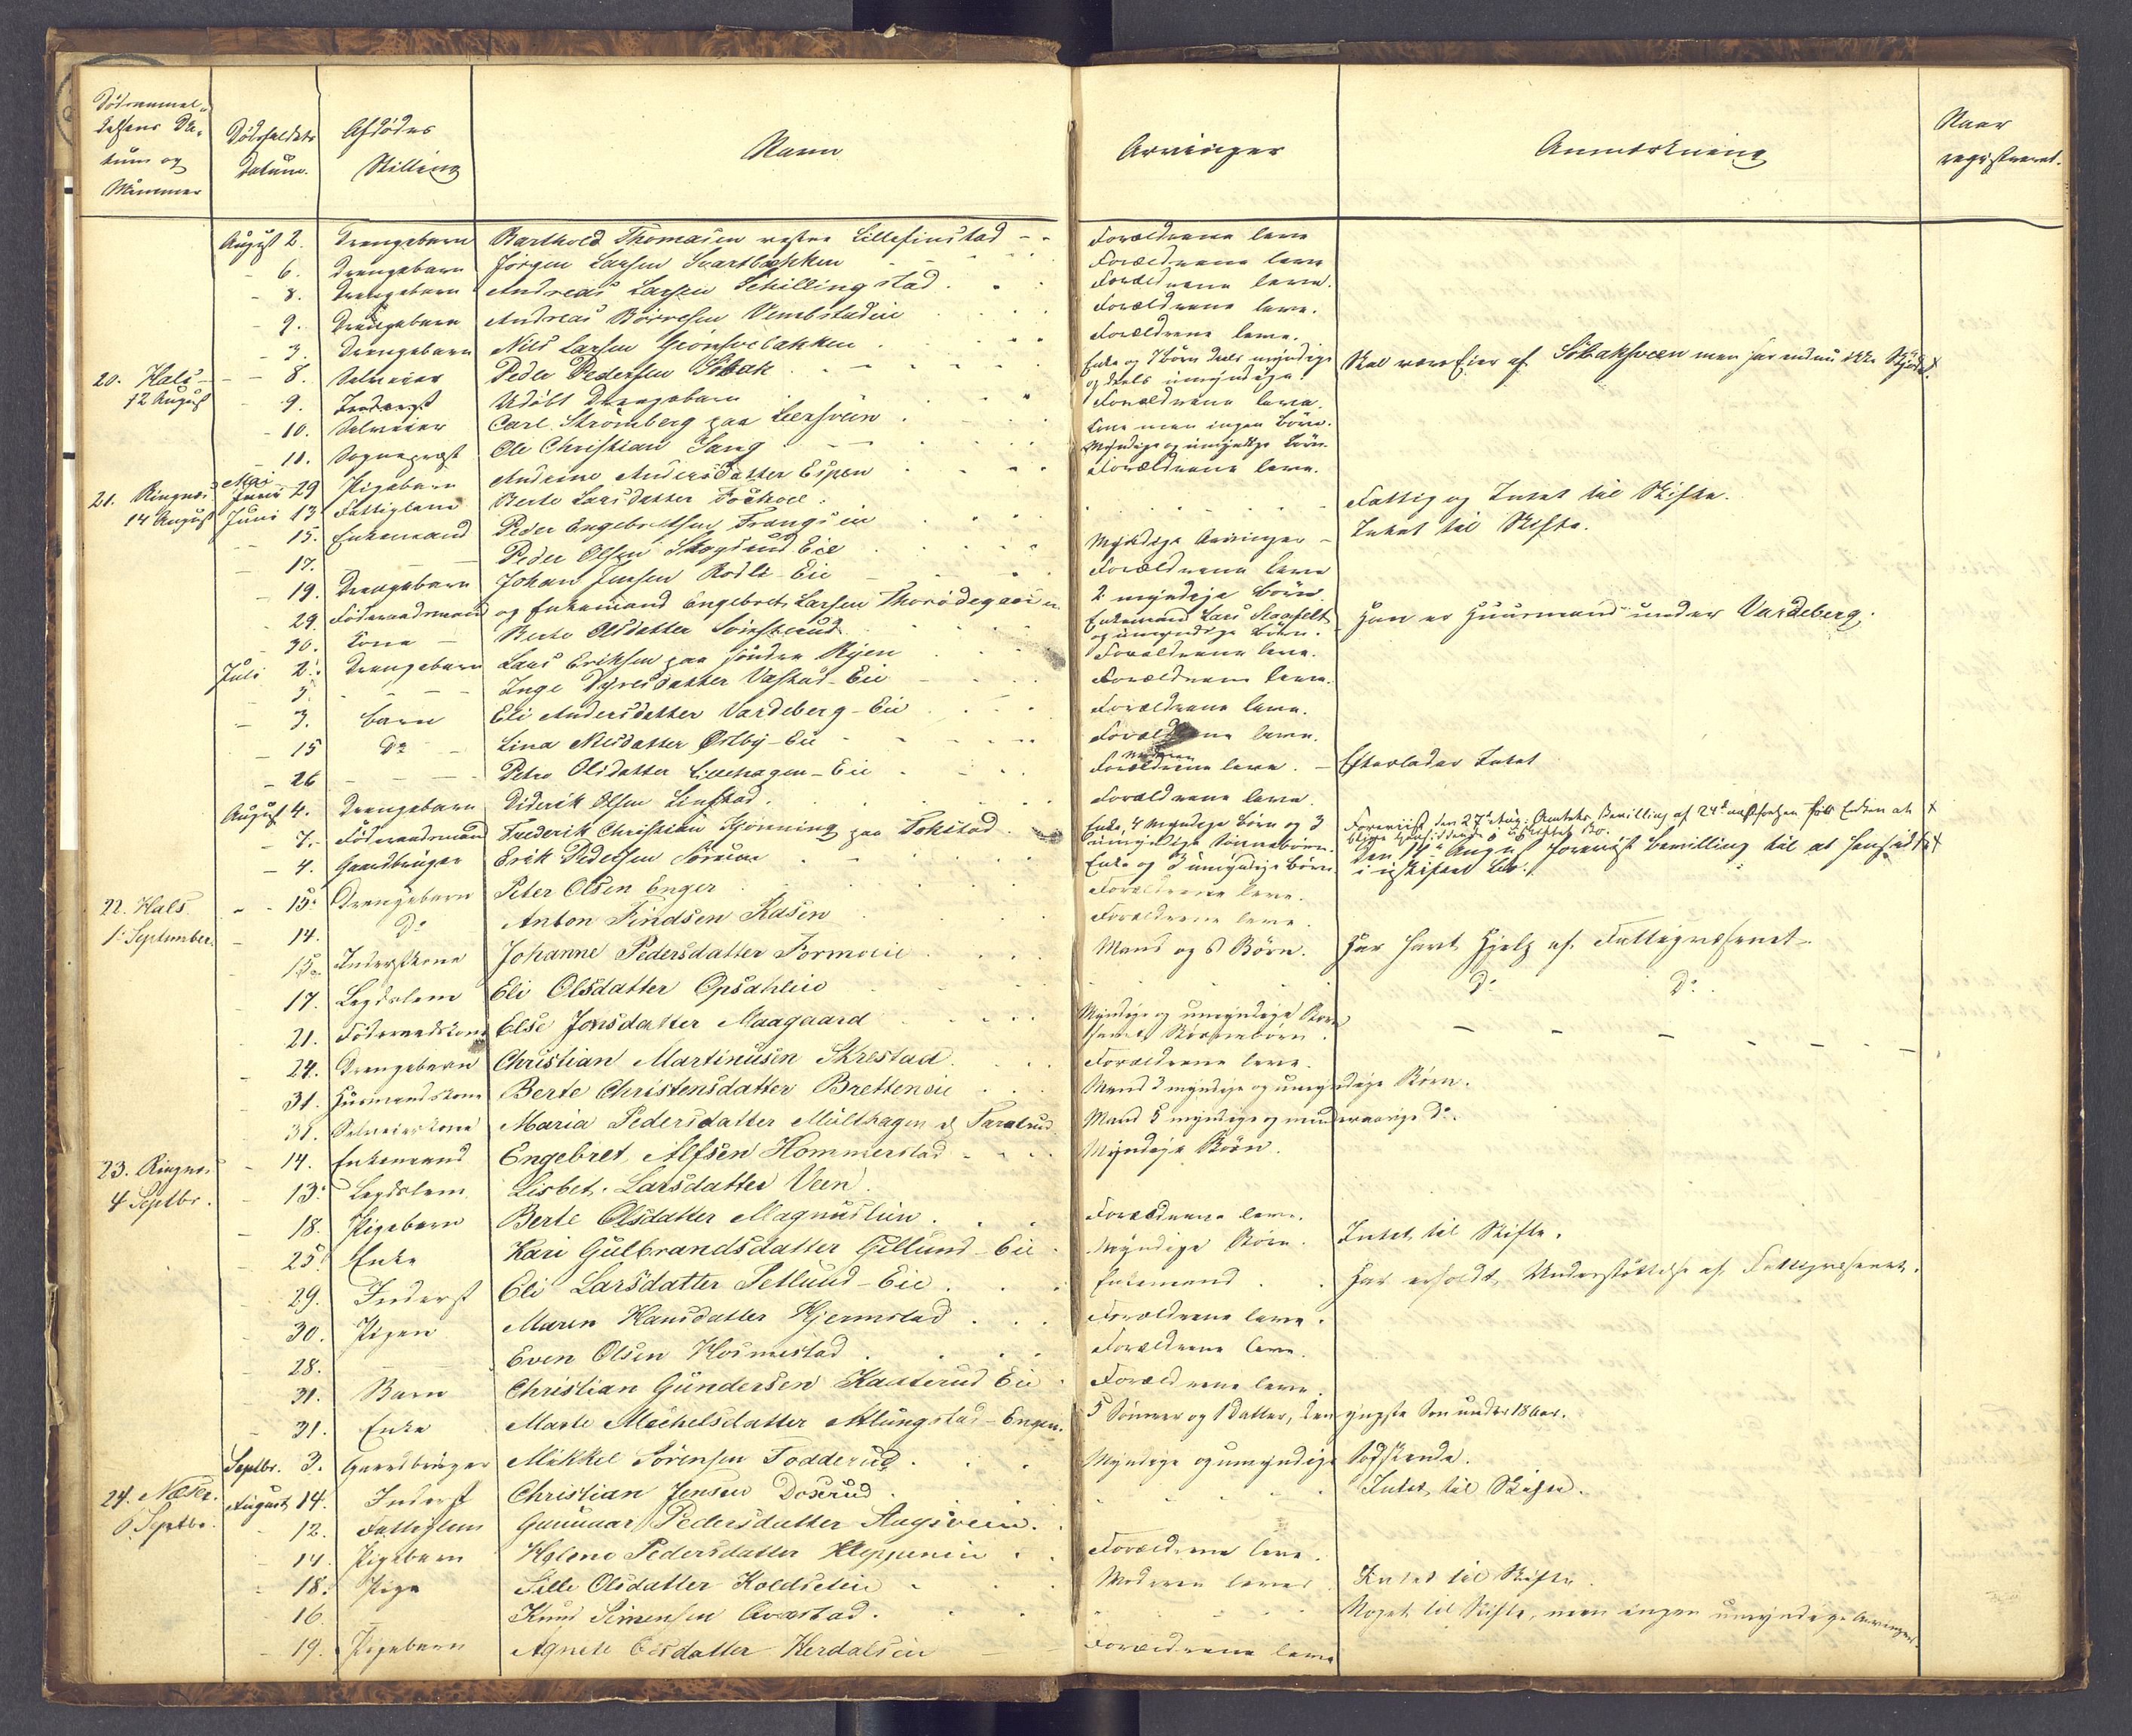 Dödsanmel-
delsens Da-
tum og
Nummer
Dödsfaldets
Datum.
Afdödes
Stilling
Navn
Arvinger
Anmærkning
Naar
registreret.
August 2. Drengebarn Barthold Thomasen vestre Lillefinstad Forældrene leve
6. Drengebarn Jörgen Larsen Svartbækken Forældrene leve
8. Drengebarn Andreas Larsen Schillingstad Forældrene leve.
9. Drengebarn Andreas Börresen Vembstadeie Forældrene leve.
3. Drengebarn Nils Larsen Forældrene leve.
20. Hals 8. Selveier Peder Pedersen Sobak Enke og 7 Börn deels myndige Skal være Eier af Söbaksveen men har endnu ikke Skjöde. x
og deels umyndige.
12 August 9. Inderst Udöbt Drengebarn Forældrene leve.
10. Selveier Carl Strömberg paa Leersveen Kone men ingen Börn.
11. Sognepræst Ole Christian Sang Myndige og umyndige Börn
21. Ringnes Mai 29 Pigebarn Andrine Andersdatter Espen Forældrene leve.
14 August Juni 13 Fattiglem Berte Larsdatter Fattig og Intet til Skifte.
15. Enkemand Peder Engebretsen Frangs Intet til Skifte.
17. Peder Olsen Skogsrud Eie Myndige Arvinger
19. Drengebarn Johan Jensen Rodli-Eie Forældrene leve
29. Föderaadsmand og Enkemand Engebret Larsen Thorödegaard 2 myndige Börn
30. Kone Berte Olsdatter Enkemand Lars han er Huusmand under Vardeberg.
og umyndige Börn.
Juli 2. Drengebarn Lars Eriksen paa söndre Rijen Forældrene leve.
3 Inge Dyresdatter Vastad-Eie Forældrene leve.
3. Barn Eli Andersdatter Vardeberg-Eie Forældrene leve.
15 Do Lina Nilsdatter Østby-Eie Forældrene leve.
26 Petra Olsdatter Lillehagen-Eie Forældrene leve. Efterlader Intet
August 4. Drengebarn Diderik Olsen Linstad. Forældrene leve.
7. Föderaadsmand Frederik Christian Hjorming paa Tokstad Enke, 4 Myndige Börn og 3 Foreviist den 27de Aug. Amtets Bevilling af 24de for Enken at x
umyndige Sönnebörn.
4. Gaardbruger Erik Pedersen Sörum Enke og 3 umyndige Börn den August foreviist Bevilling til at hensidde x
i uskiftet Bo.
22. Hals. 15. Drengebarn Peter Olsen Enger Forældrene leve.
1. September. 14. Do Anton Findsen Kasen Forældrene leve
15. Inderstkone Johanne Pedersdatter Formoeie Mand og 5 Börn. Har havt Hjelp af Fattigvæsenet
17. Legdslem Eli Olsdatter Opsahleie Do Do
21. Föderaadskone Else Jonsdatter Maagaard Myndige og umyndige Börn
samt Börnebörn.
24. Drengebarn Christian Martinusen Skrestad Forældrene leve.
31. Husmandskone Berte Christensdatter Bretteneie Mand 3 myndige og umyndige Börn.
31. Selveierkone Maria Pedersdatter Melthagen Mand 5 myndige og mindreaarige Do.
23. Ringnes 14. Enkemand Engebret Alfsen Hommerstad Myndige Börn.
4 Septbr. 13. Legdslem Lisbet Larsdatter Veen.
18. Pigebarn Berte Olsdatter Magnuslien. Forældrene leve.
25. Enke Kari Gulbrandsdatter Gillund-Eie Myndige Börn. Intet til Skifte.
29. Inderst Eli Larsdatter Setlund-Eie Enkemand har erholdt Understöttelse af Fattigvæsenet.
30. Pigen Maren Hansdatter Hjermstad Forældrene leve.
28. Even Olsen Hosmestad Forældrene leve.
31. Barn Christian Gundersen Kaaterud Eie Forældrene leve.
31. Enke Marte Michelsdatter Atlungstad-Engen. 5 Sönner og 1 Datter, den yngste Sön under 18 Aar.
Septbr. 3. Gaardbruger Mikkel Sörensen Fodderud Myndige og umyndige Södskende.
24. Næser. August 14. Inderst Christian Jensen Doserud Intet til Skifte.
6 Septbr. 12. Fattiglem Gunnar Pedersdatter
14. Pigebarn Helene Pedersdatter Kleppeneie Forældrene leve.
18. Pige Sille Olsdatter Koldseteie Moderen lever Intet til Skifte.
16. Knud Simensen Qværstad. Noget til Skifte, men ingen umyndige Arvinger.
19. Pigebarn Agnete Olsdatter Herdalseie Forældrene leve